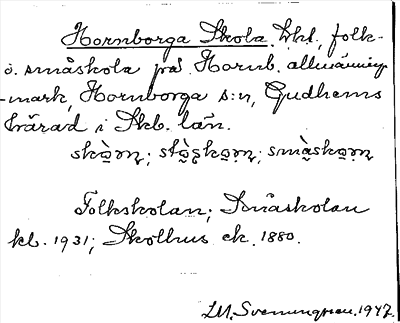 Hornborga Skola. Lht., folk-
o. småskola på Hornb. allmännings-
-mark, Hornborga s:n, Gudhems
härad i Skb. län.
skò̱m; stò̱ʂko̱m; smàsko̱m
Folkskolan; Småskolan
kl. 1931; Skolhus ek. 1880.
I.M. Svenungsson. 1947.